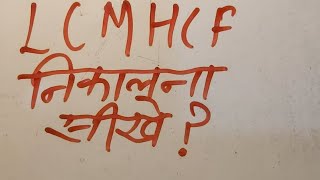 LCMHCF
निकालना
सीखे?